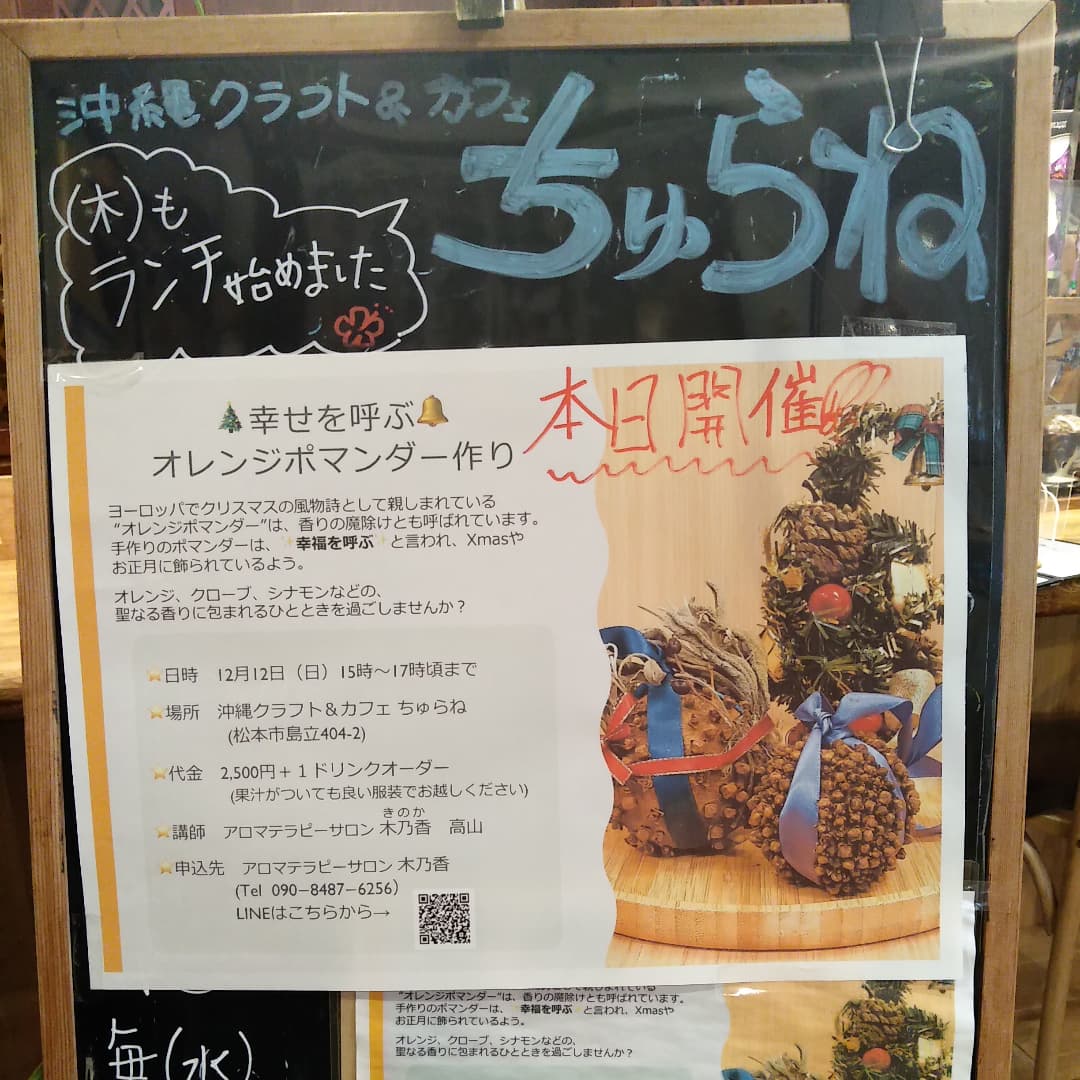 沖縄クラフト&カフェ
ちゅらね
(木)も
ランチ始めました
本日開催
幸せを呼ぶ
オレンジポマンダー作り
ヨーロッパでクリスマスの風物詩として親しまれている
“オレンジポマンダー”は、香りの魔除けとも呼ばれています。
手作りのポマンダーは、✨幸福を呼ぶ✨と言われ、Xmasや
お正月に飾られているよう。
オレンジ、クローブ、シナモンなどの、
聖なる香りに包まれるひとときを過ごしませんか？
⭐日時 12月12日（日）15時～17時頃まで
⭐場所 沖縄クラフト＆カフェ ちゅらね
(松本市島立404-2)
⭐代金 2,500円＋１ドリンクオーダー
(果汁がついても良い服装でお越しください)
きのか
⭐講師 アロマテラピーサロン 木乃香 高山
⭐申込先 アロマテラピーサロン 木乃香
(Tel 090−8487−6256）
LINEはこちらから→
“オレンジポマンダー”は、香りの魔除けとも呼ばれています。
手作りのポマンダーは、✨幸福を呼ぶ✨と言われ、Xmasや
お正月に飾られているよう。
オレンジ、クローブ、シナモンなどの、
聖なる香りに包まれるひとときを過ごしませんか？
毎(水)